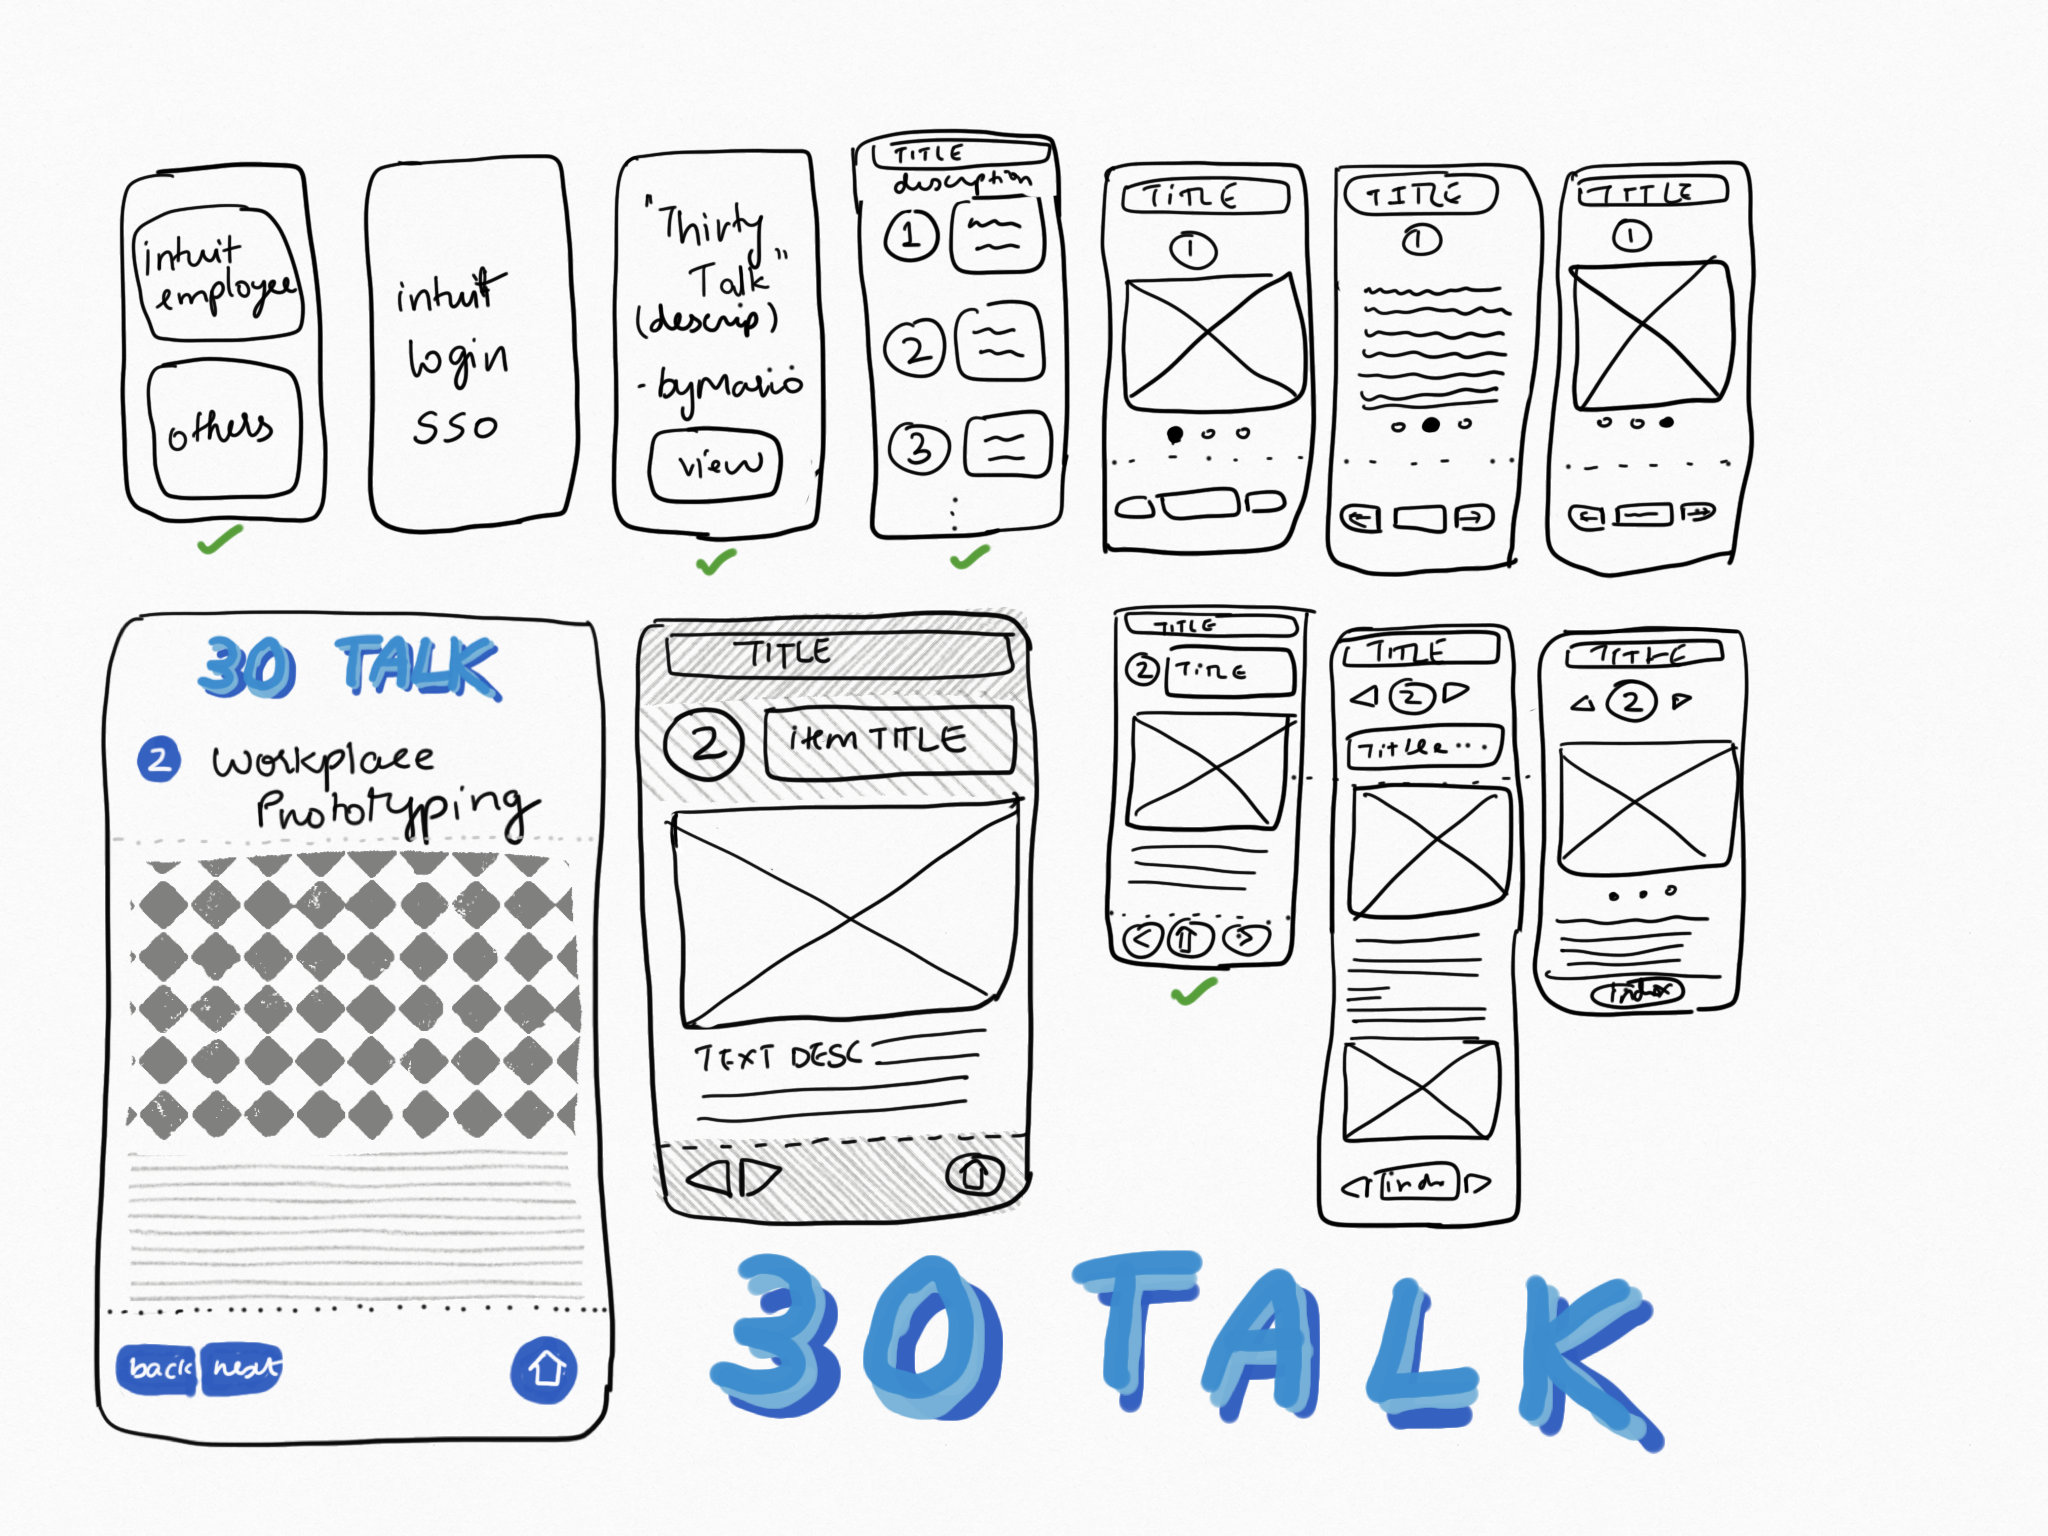 intuit
employee
others
intuit
login
SSO
"Thirty
Talk"
(descrip)
- by Mario
view
TITLE
description
1
2
3
TITLE
1
TITLE
1
TITLE
1
30 TALK
2 Workplace
Prototyping
back next
TITLE
2 item TITLE
TEXT DESC
TITLE
2 TITLE
TITLE
2
Titlle...
index
TITLE
2
index
30 TALK